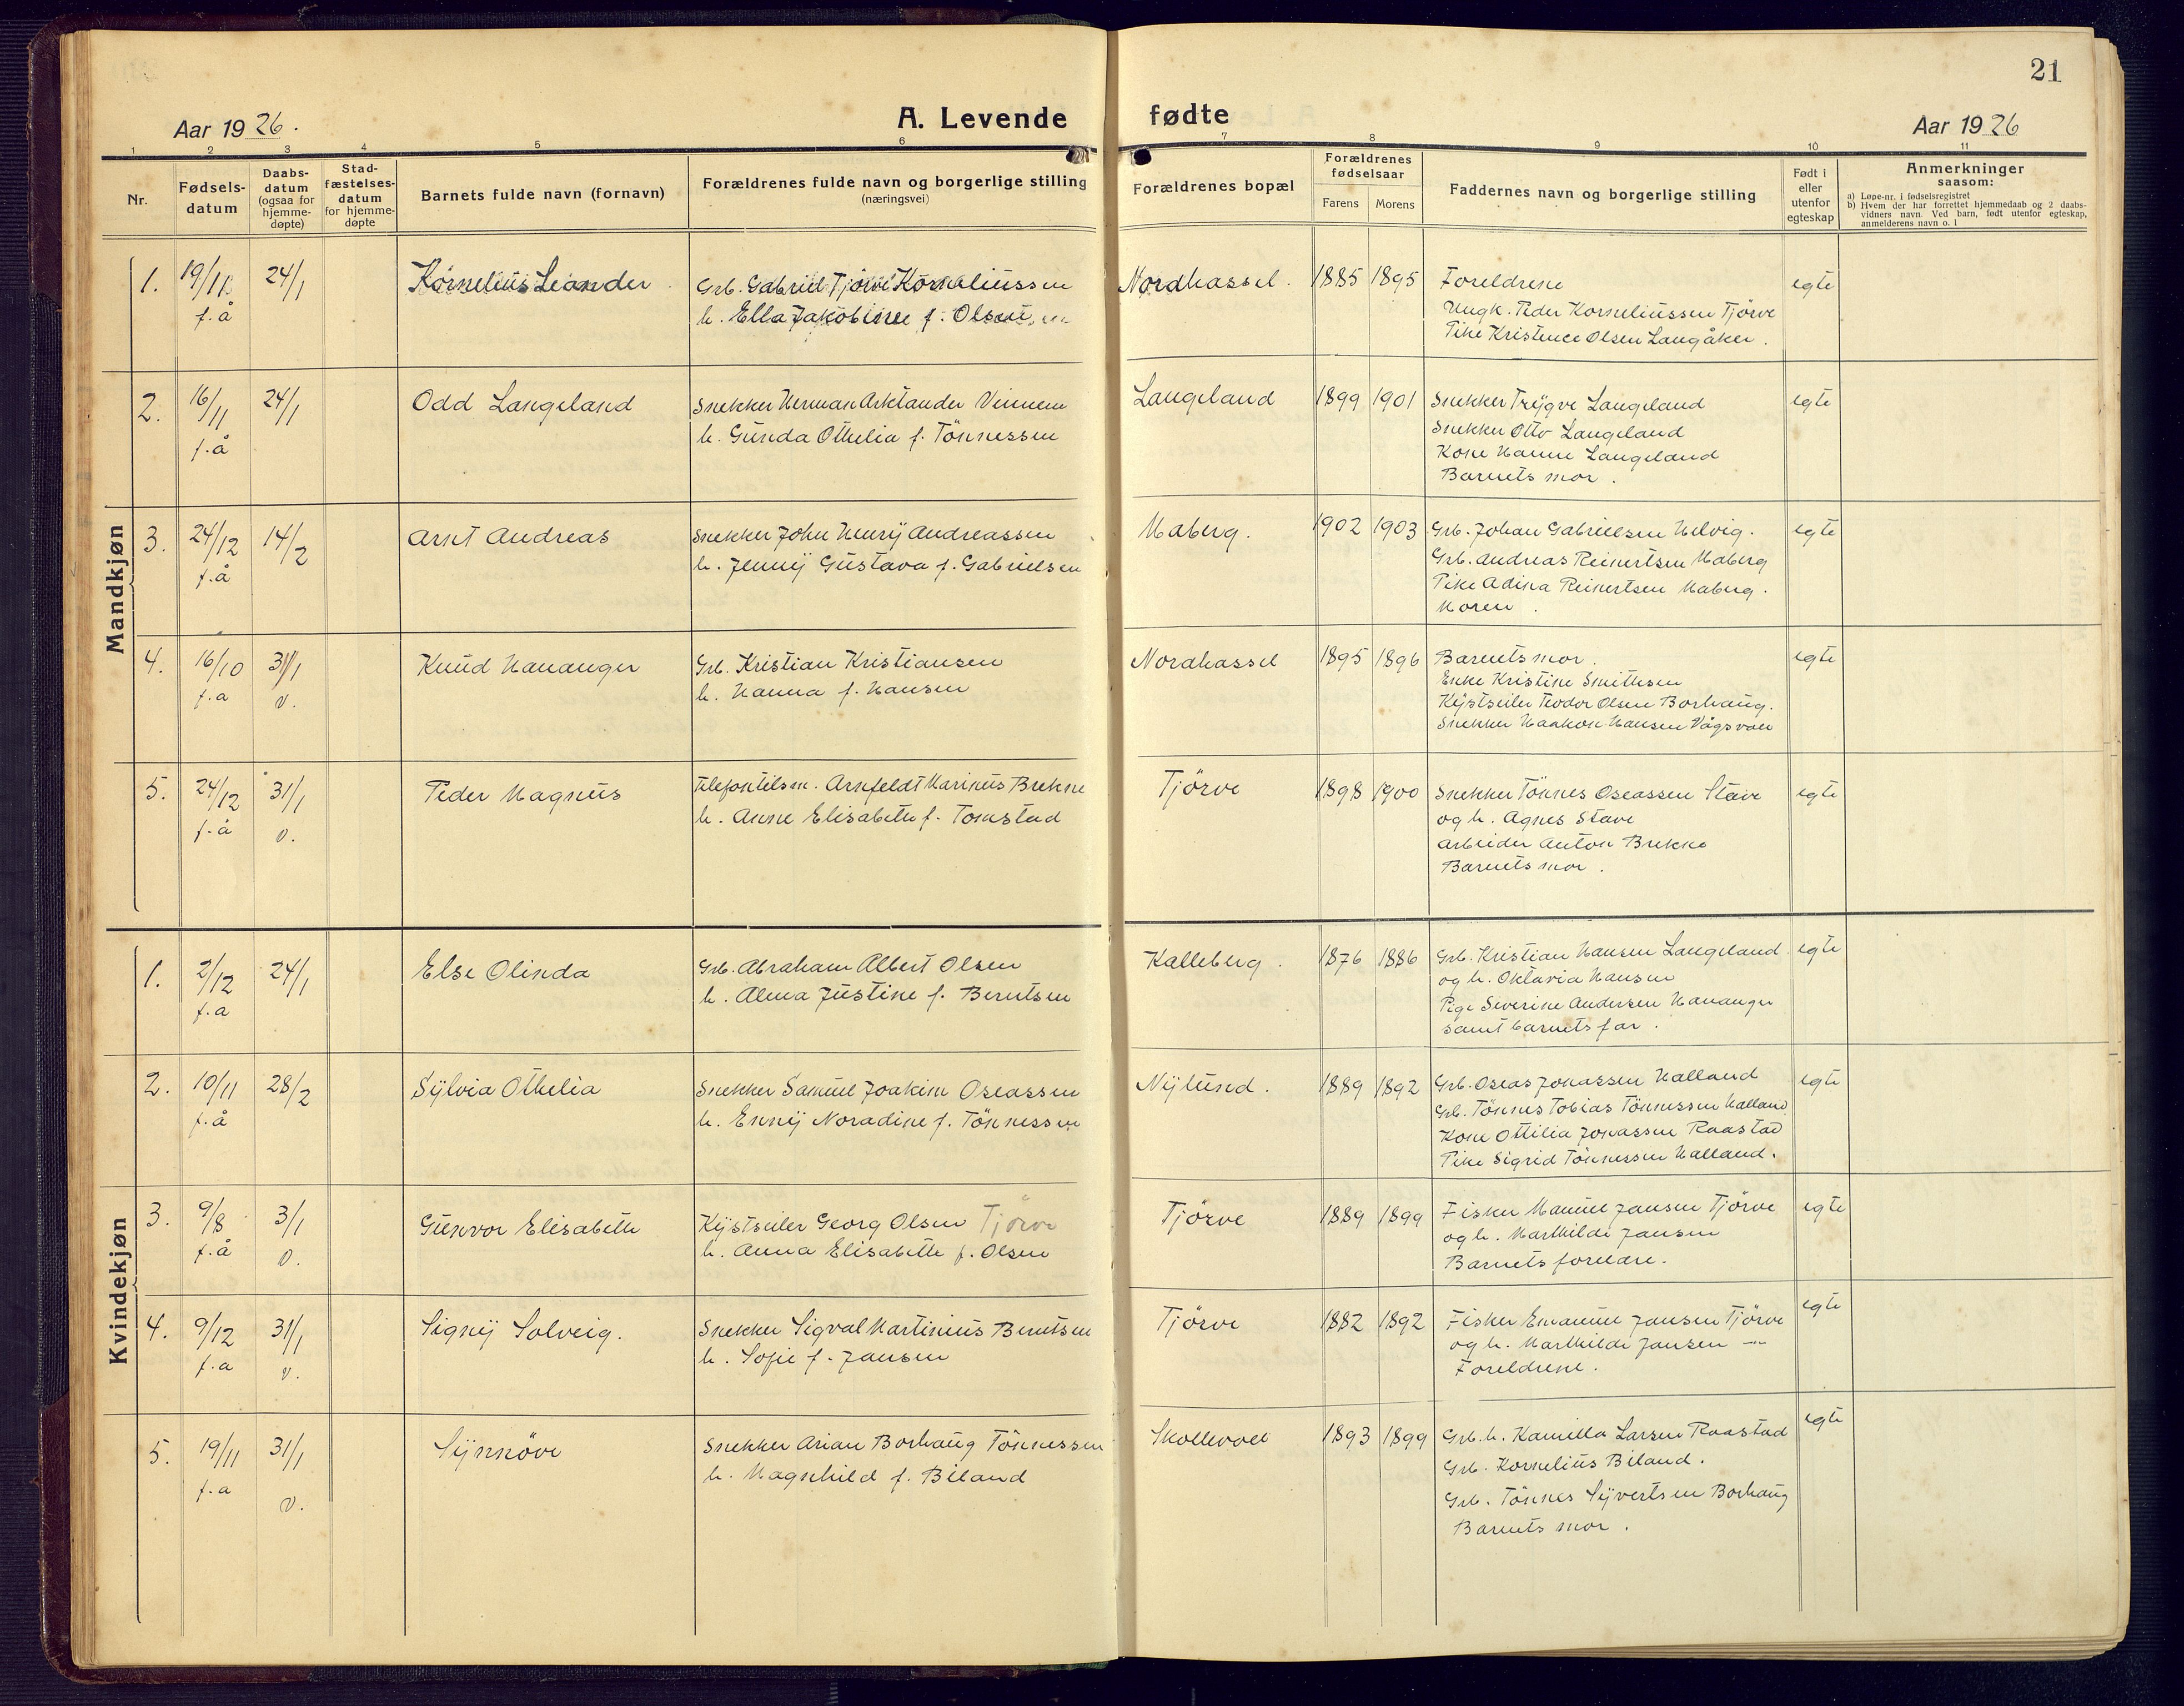 21
Aar 1926.
A. Levende fødte
Aar 1926
1 2 3 4 5 6 7 8 9 10 11
Nr.
Fødsels-
datum
Daabs-
datum
(ogsaa for
hjemme-
døpte)
Stad-
fæstelses-
datum
for hjemme-
døpte
Barnets fulde navn (fornavn)
Forældrenes fulde navn og borgerlige stilling
(næringsvei)
Forældrenes bopæl
Forældrenes
fødselsaar
Farens Morens
Faddernes navn og borgerlige stilling
Født i
eller
utenfor
egteskap
Anmerkninger
saasom:
a) Løpe-nr. i fødselsregistret
b) Hvem der har forrettet hjemmedaab og 2 daabs-
vidners navn. Ved barn, født utenfor egteskap,
anmelderens navn o. l
Mandkjøn
1. 19/11 f.å 24/1 Kornelius Leander
Grb. Gabriel Tjörve Korneliussen
h. Ella Jakobine f. Olsen
Nordhassel. 1885 1895
Foreldrene
Ungk. Peder Korneliussen Tjörve
Pike Kristence Olsen Langåker.
egte
2. 16/11 f.å 24/1 Odd Langeland
Snekker Herman Arktander Vinnem
h. Gunda Othelia f. Tönnessen
Langeland 1899 1901
Snekker Trygve Langeland
Snekker Otto Langeland
Kone Hanne Langeland
Barnets mor.
egte
3. 24/12 f.å 14/2 Arnt Andreas
Snekker John Henry Andreassen
h. Jenny Gustava f. Gabrielsen
Maberg. 1902 1903
Grb. Johan Gabrielsen Helvig.
Grb. Andreas Reinertsen Maberg
Pike Adina Reinertsen Maberg.
Moren.
egte
4. 16/10 f.a 31/1 v. Knud Hananger
Grb. Kristian Kristiansen
h. Hanna f. Hansen
Nordhassel 1895 1896
Barnets mor.
Enke Kristine Smithsen
Kystseiler Teodor Olsen Borhaug.
Snekker Haakon Hansen Vågsvoll
egte
5. 24/12 f.å 31/1 v. Peder Magnus
Telefontilsm. Arnfeldt Marinus Brekne
h. Anne Elisabeth f. Tomstad
Tjörve 1898 1900
Snekker Tönnes Oseassen Stave
og h. Agnes Stave
Arbeider Anton Brekke
Barnets mor.
egte
Kvindekjøn
1. 2/12 f.a 24/1 Else Olinda
Grb. Abraham Albert Olsen
h. Alma Justine f. Berntsen
Kalleberg. 1876 1886
Grb. Kristian Hansen Langeland
og h. Oktavia Hansen
Pige Severine Andersen Hananger
samt barnets far.
egte
2. 10/11 f.å 28/2 Sylvia Othelia
Snekker Samuel Joakim Oseassen
h. Enny Noradine f. Tönnessen
Nylund. 1889 1892
Grb. Oseas Jonassen Halland
Grb. Tönnes Tobias Tönnessen Halland
Kone Ottilia Jonassen Raastad
Pike Sigrid Tönnessen Halland.
egte
3. 9/8 f.å 3/1 v. Gunvor Elisabeth
Kystseiler Georg Olsen Tjörve
h. Anna Elisabeth f. Olsen
Tjörve 1889 1899
Fisker Manuel Jansen Tjörve
og h. Marthilde Jansen
Barnets foreldre.
egte
4. 9/12 f.a 31/1 v. Signy Solveig.
Snekker Sigval Martinius Berntsen
h. Sofie f. Jansen
Tjörve 1882 1892
Fisker Emanuel Jansen Tjörve
og h. Marthilde Jansen —
Foreldrene.
egte
5. 19/11 f.a 31/1 v. Synnöve
Snekker Arian Borhaug Tönnessen
h. Magnhild f. Biland
Skollevoll 1893 1899
Grb. h. Kamilla Larsen Raastad
Grb. Kornelius Biland.
Grb. Tönnes Syvertsen Borhaug
Barnets mor.
egte